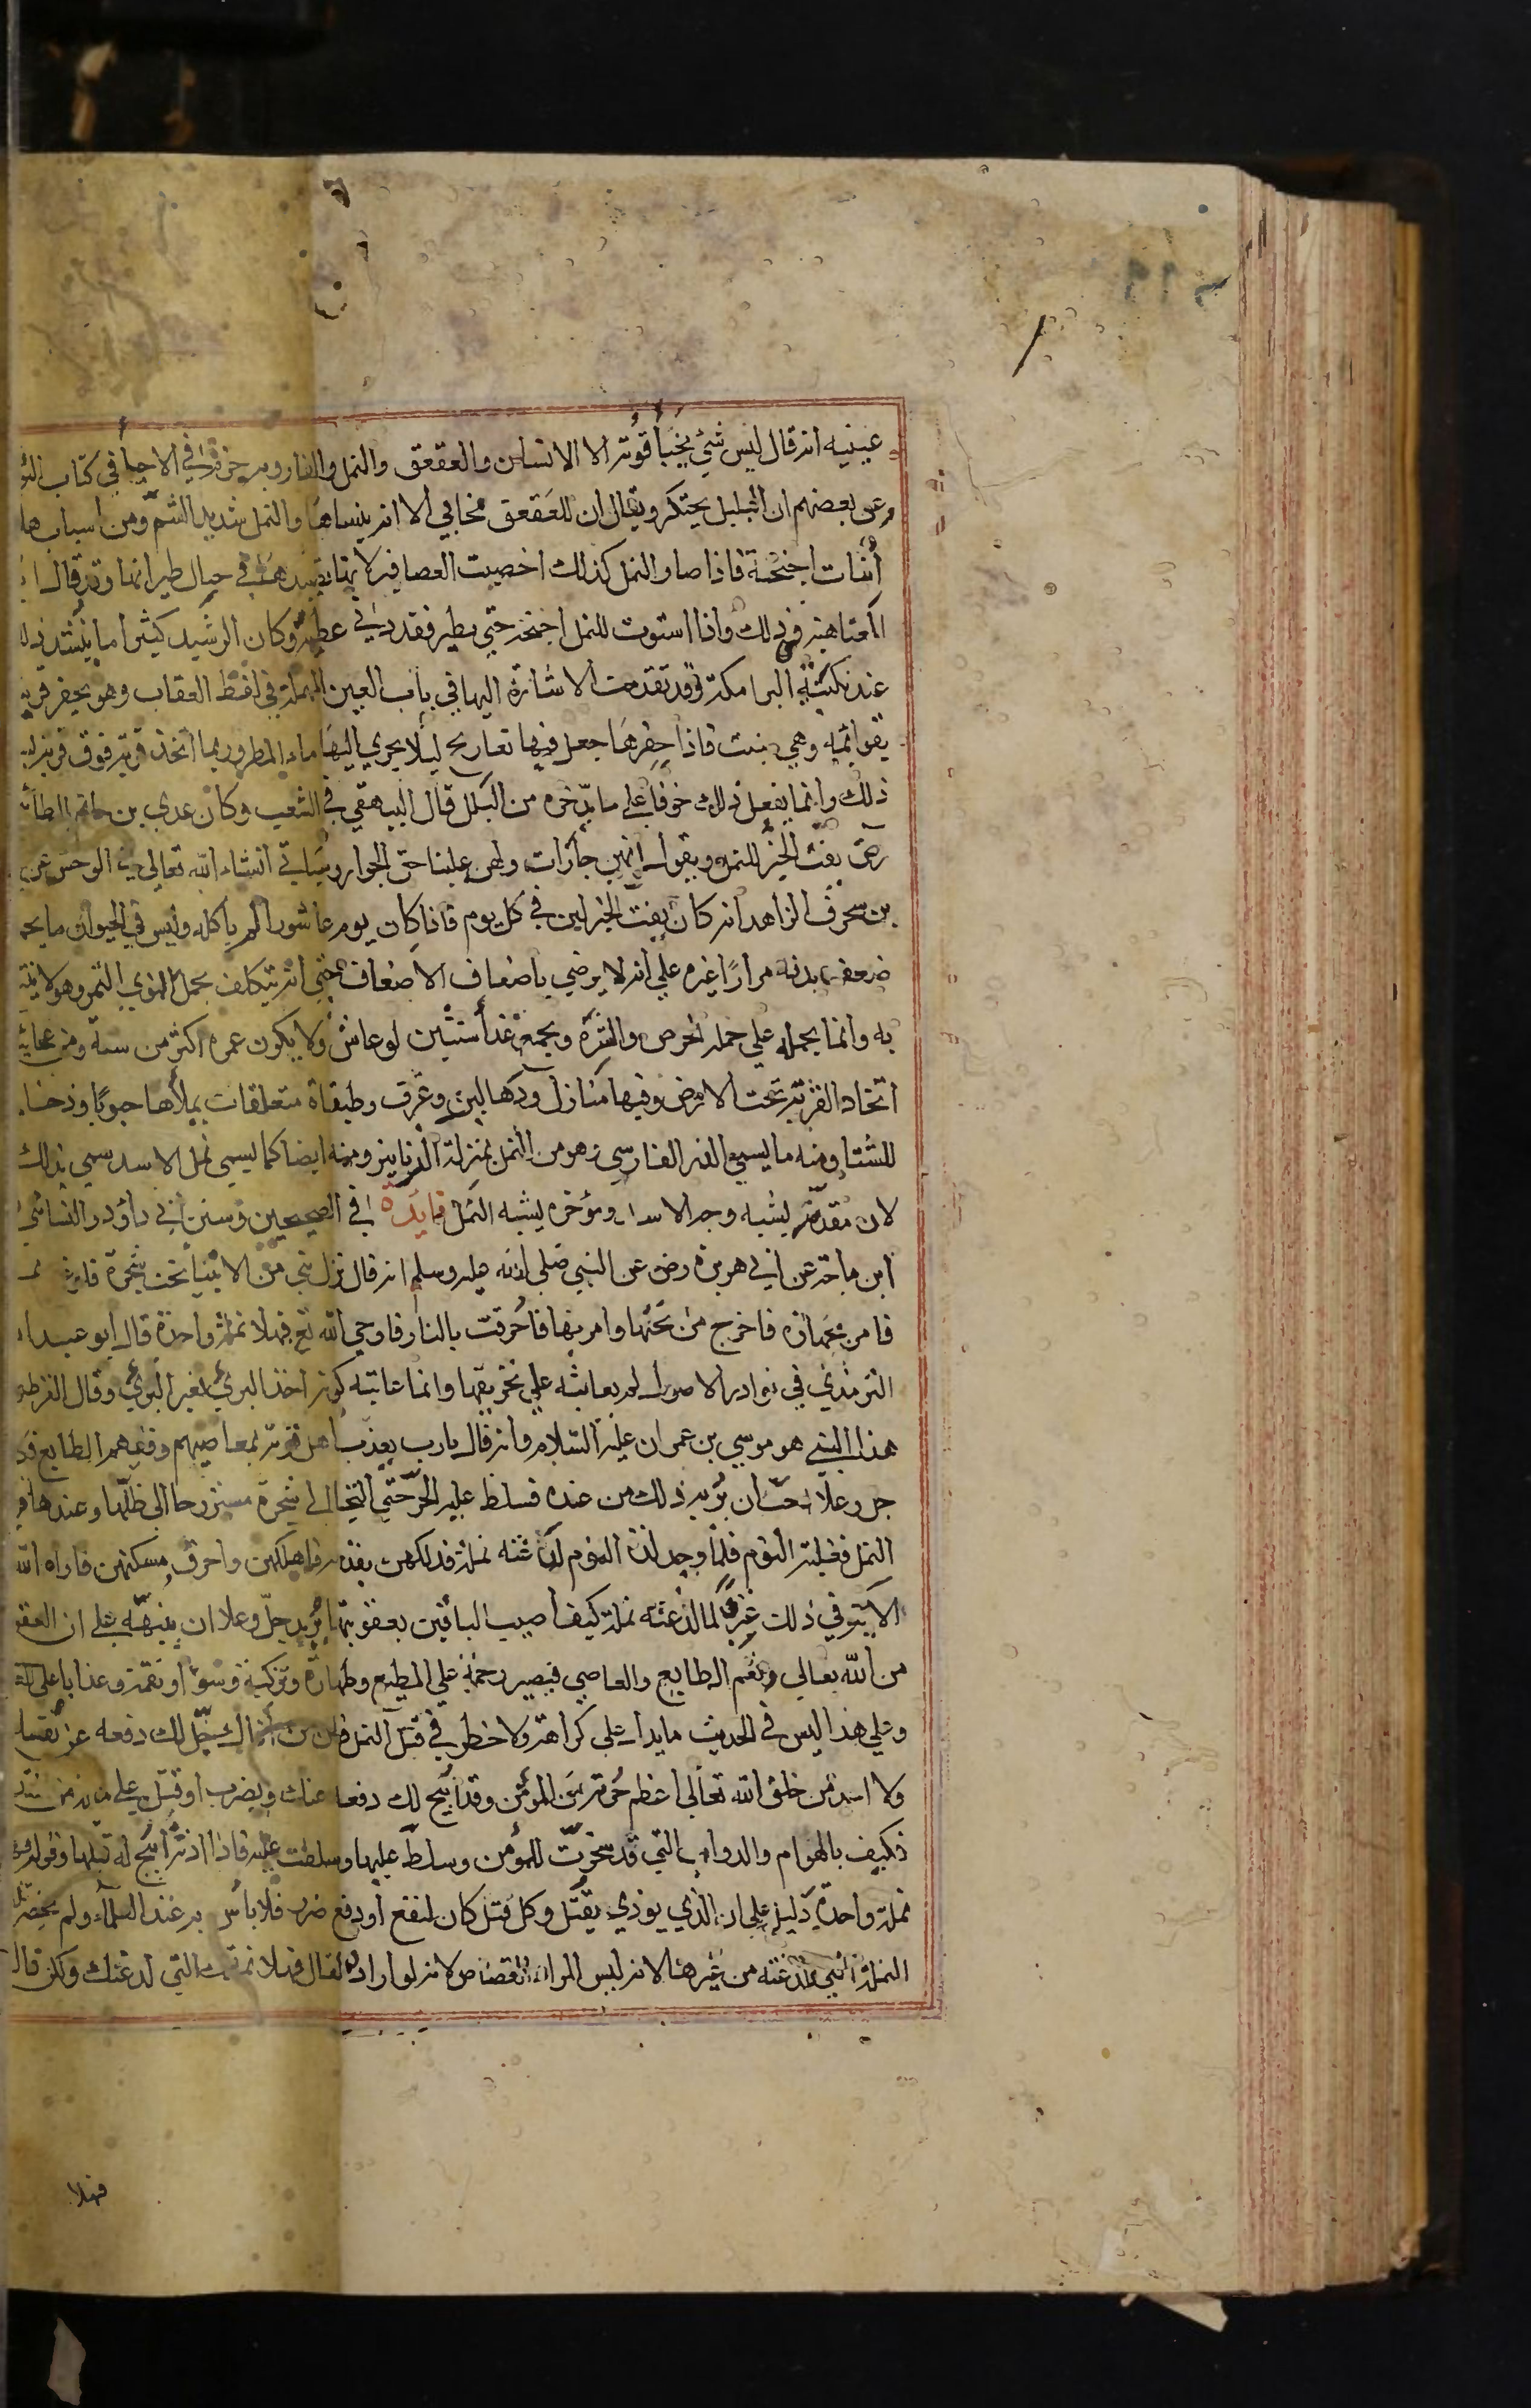 عيينيه انه قال ليس شئ يخبأ قوته الا الانسان والعقعق والنمل والفار وبه جزم في الاحيا في كتاب التو
وعن بعضهم ان البلبل يحتكر ويقال ان للعقعق مخابي الا انه ينساها والنمل شديد الشم ومن اسباب هلا
أنبات اجنحته فاذا صار النمل كذلك اخصبت العصافير لانها تصيدها في حال طيرانها وقد قال ا
العتاهية في ذلك واذا استوت للنمل اجنحة حتى يطير فقد دنى عطبه وكان الرشيد كثيرا ما ينشد ذلك
عند نكبته البرامكة وقد تقدمت الاشارة اليها في باب العين المهملة في لفظ العقاب وهو يحفر قريته
بقوائمه وهي ست فاذا حفرها جعل فيها تعاريج ليلا يجري اليها ماء المطر وربما اتخذ قرية فوق قرية
ذلك وانما يفعل ذلك خوفا على ما يدخره من البلل قال البيهقي في الشعب وكان عدي بن حاتم الطائي
رضى يفت الخبز للنمل ويقول انهن جارات ولهن علينا حق الجوار وسياتي انشاء الله تعالى في الوحش عن
بن سحرف الزاهد انه كان يفت الخبز لهن في كل يوم فاذا كان يوم عاشورا لم ياكله وليس في الحيوان ما يحم
ضعف بدنه مرارًا غيره علي انه لا يرضي باضعاف الاضعاف حتى انه يتكلف بحمل النوي التمر وهو لا ينتفع
به وانما يحمله علي حمله الحرص والشره ويجمع غذا سنتين لو عاش ولا يكون عمره اكثر من سنة ومن عجائبه
اتخاذ القرية تحت الارض وفيها منازل ودهاليز وغرف وطبقات متعلقات يملأها حبوبا وذخاير
للشتا ومنه ما يسمى الذر الفارسي وهو من النمل بمنزلة الزنابير ومنه ايضا كما يسمى نمل الاسد سمي بذلك
لان مقدمه يشبه وجه الاسد ومؤخره يشبه النمل فايدة في الصحيحين وسنن ابي داؤد والنسائي
ابن ماجة عن ابي هريرة رض عن النبي صلى الله عليه وسلم انه قال نزل نبي من الانبيا تحت شجرة فلدغته نمـ
فامر بجهازه فاخرج من تحتها وامر بها فاحرقت بالنار فاوحي الله تع فهلا نملة واحدة قال ابو عبد الله
الترمذي في نوادر الاصول لم يعاتبه علي تحريقها وانما عاتبه كونه اخذ البرئ بغير البرئ وقال القرطبي
هذا النبي هو موسي بن عمران عليه السلام وانه قال يارب يعذب اهل قرية بمعاصيهم وفيهم الطايع فكا
جل وعلا احب ان يريه ذلك من عنده فسلط عليه الحر حتى التجا الي شجرة مستروحا الى ظلها وعندها قر
النمل فغلبه النوم فلما وجد لذة النوم لدغته نملة فدلكهن بقدمه فاهلكهن واحرق مسكنهن فاراه الله
الاية في ذلك عبرة لما لدغته نملة كيف اصيب الباقين بعقوبتها يريد جل وعلا ان ينبهه على ان العقو
من الله تعالى تعم الطايع والعاصي فيصير رحمة علي المطيع وطهارة وتزكية وسوء او نقمة وعذابا على الع
وعلي هذا ليس في الحديث ما يدل على كراهة ولا خطر في قتل النمل فان من اذاك حل لك دفعه عن نفسك
ولا احد من خلق الله تعالى اعظم حرمة من المؤمن وقد ابيح لك دفعه عنك ويضرب او قتل علي ماله من
فكيف بالهوام والدواب التي قد سخرت للمؤمن وسلط عليها وسلطت عليه فاذا اذته ابيح له قتلها وقوله
نملة واحدة دليل علي ان الذي يوذي يقتل وكل قتل كان لنفع او دفع ضرر فلا بأس به عند العلماء ولم يخص
النملة التي لدغته من غيرها لانه ليس المراد القصاص لانه لو اراده لقال فهلا نملتك التي لدغتك ولكن قال
فهلا